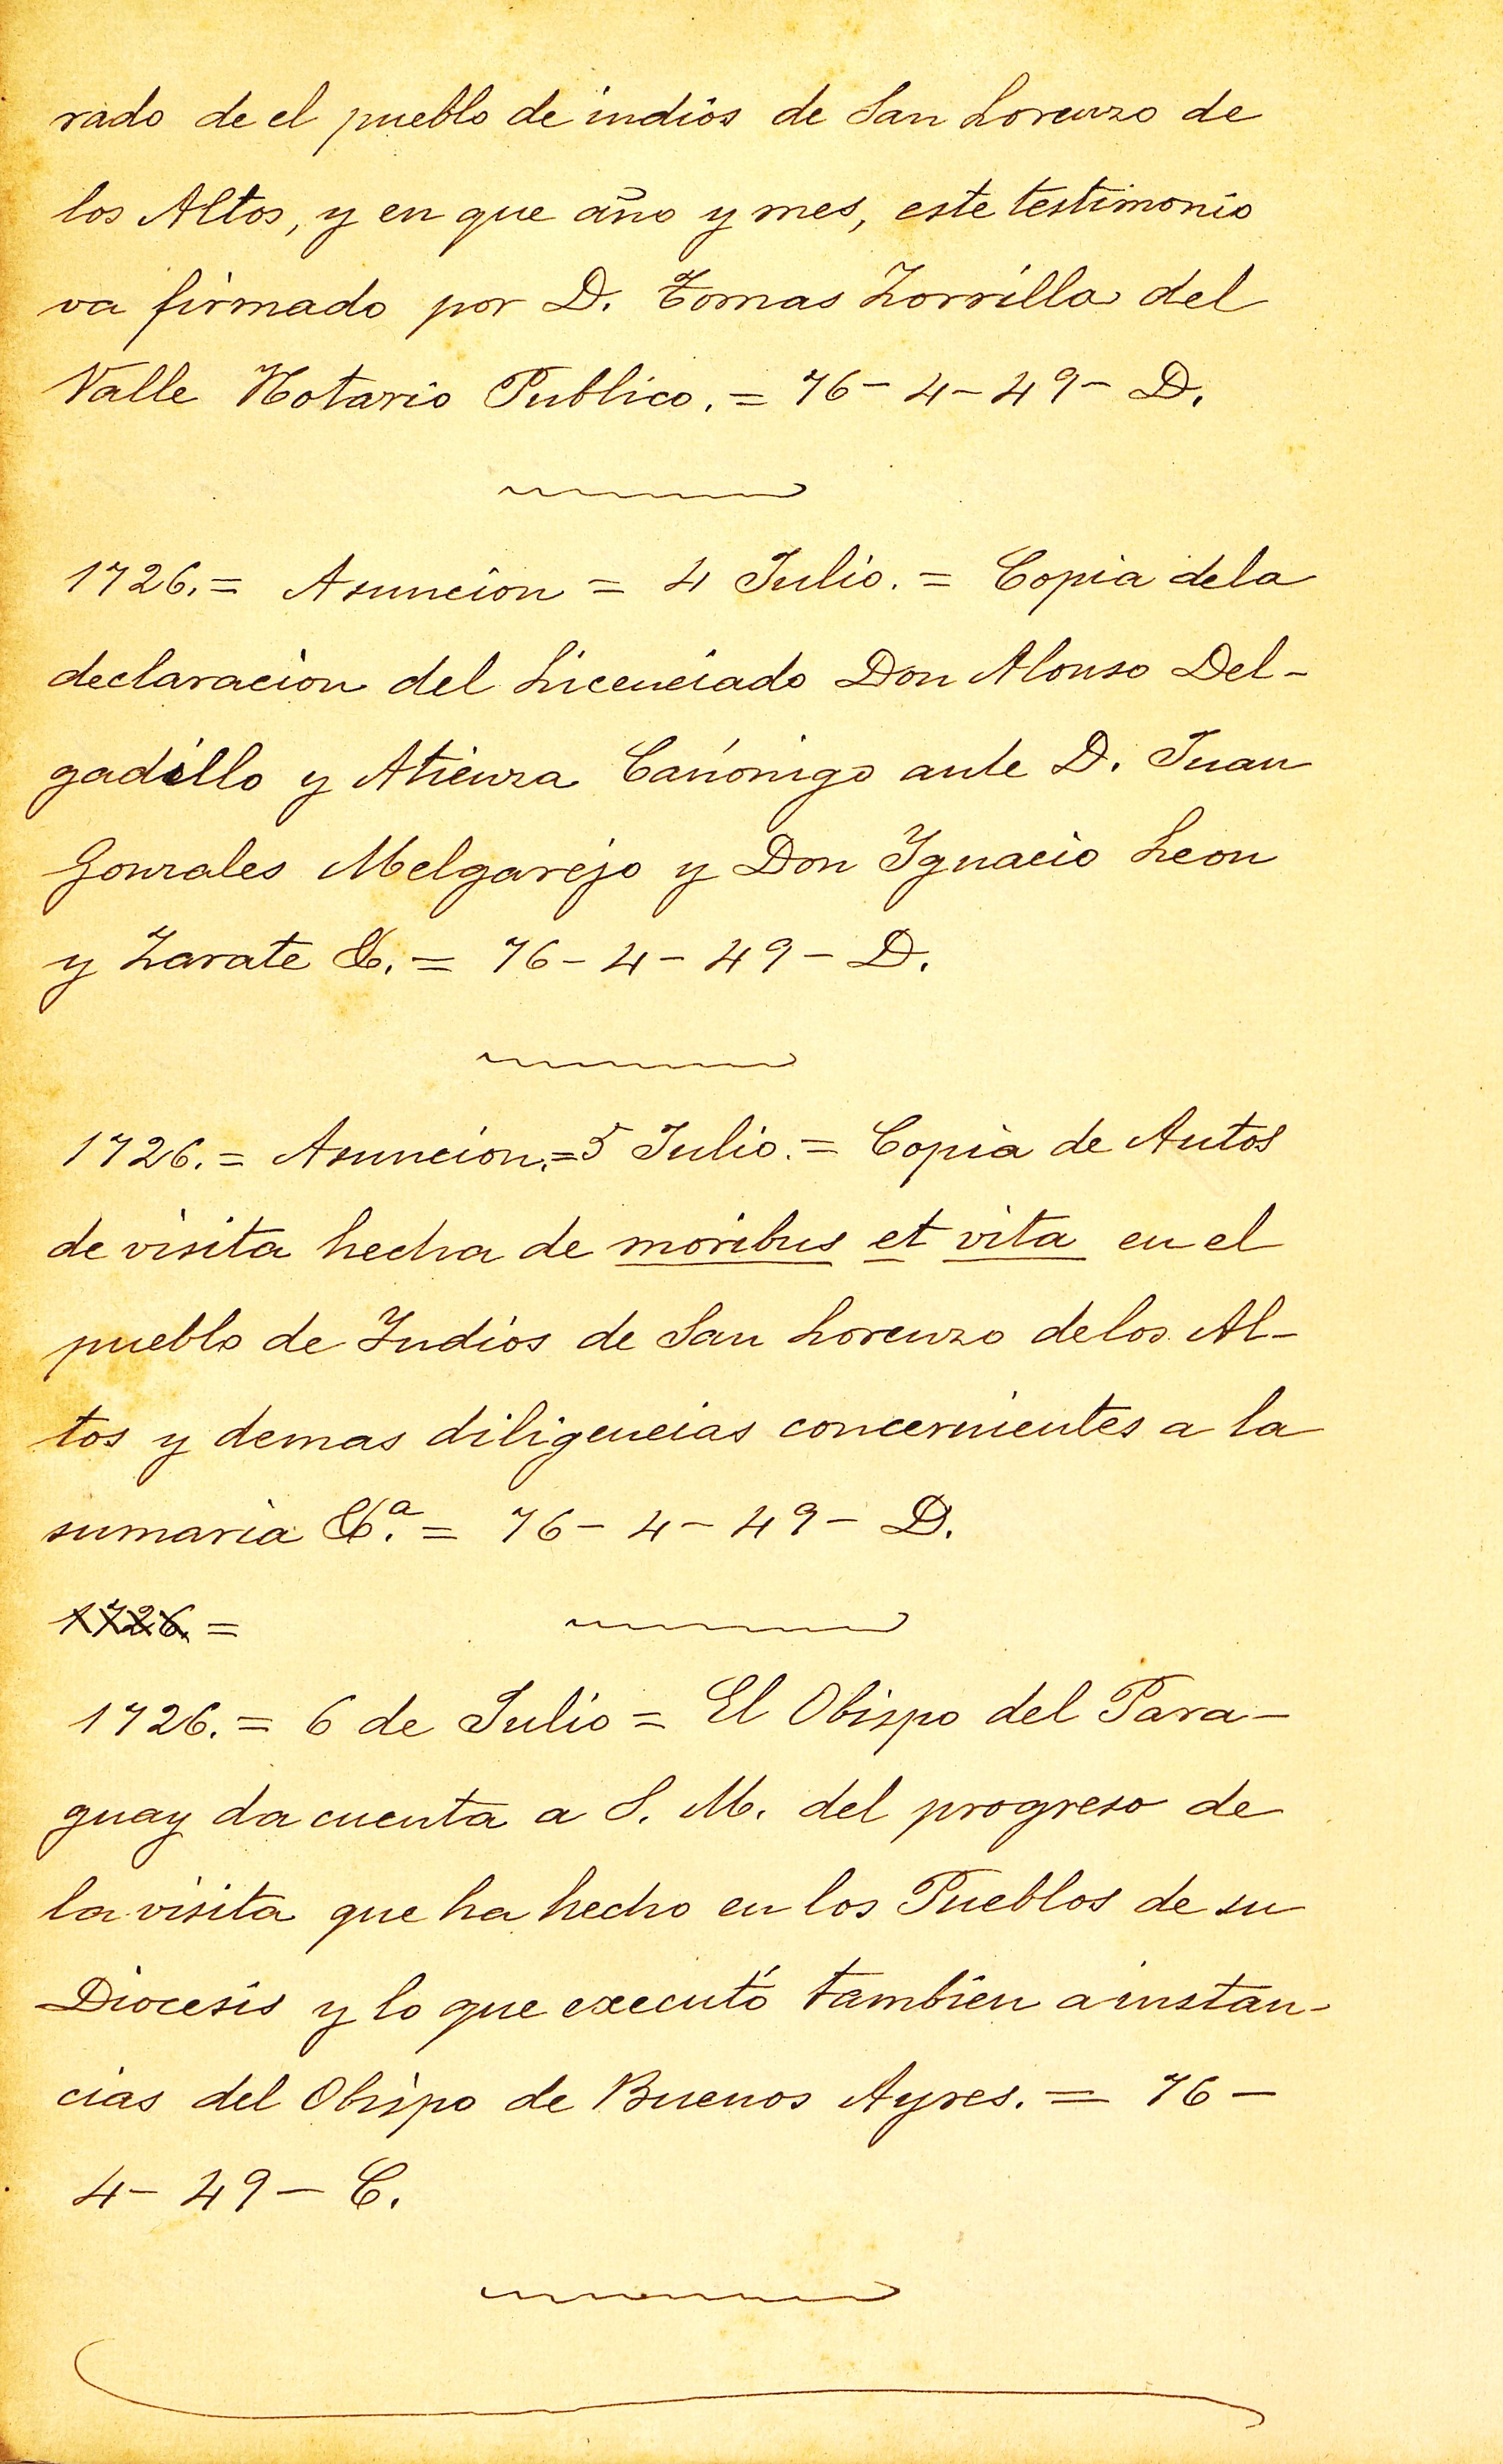 rado de el pueblo de indios de San Lorenzo de
los Altos, y en que año y mes, este testimonio
va firmado por D. Tomas Zorrilla del
Valle Notario Publico. = 76 - 4 - 49 - D.
1726. = Asuncion = 4 Julio. = Copia dela
declaracion del Licenciado Don Alonso Del-
gadillo y Atienza Canónigo ante D. Juan
Gonzales Melgarejo y Don Ignacio Leon
y Zarate &. = 76 - 4 - 49 - D.
1726. = Asuncion. = 5 Julio. = Copia de Autos
de visita hecha de moribus et vita en el
pueblo de Indios de San Lorenzo delos Al-
tos y demas diligencias concernientes a la
sumaria &.ª = 76 - 4 - 49 - D.
1726. =
1726. = 6 de Julio = El Obispo del Para-
guay da cuenta a S. M. del progreso de
la visita que ha hecho en los Pueblos de su
Diocesis y lo que executó tambien a instan-
cias del Obispo de Buenos Ayres. = 76 -
4 - 49 - C.